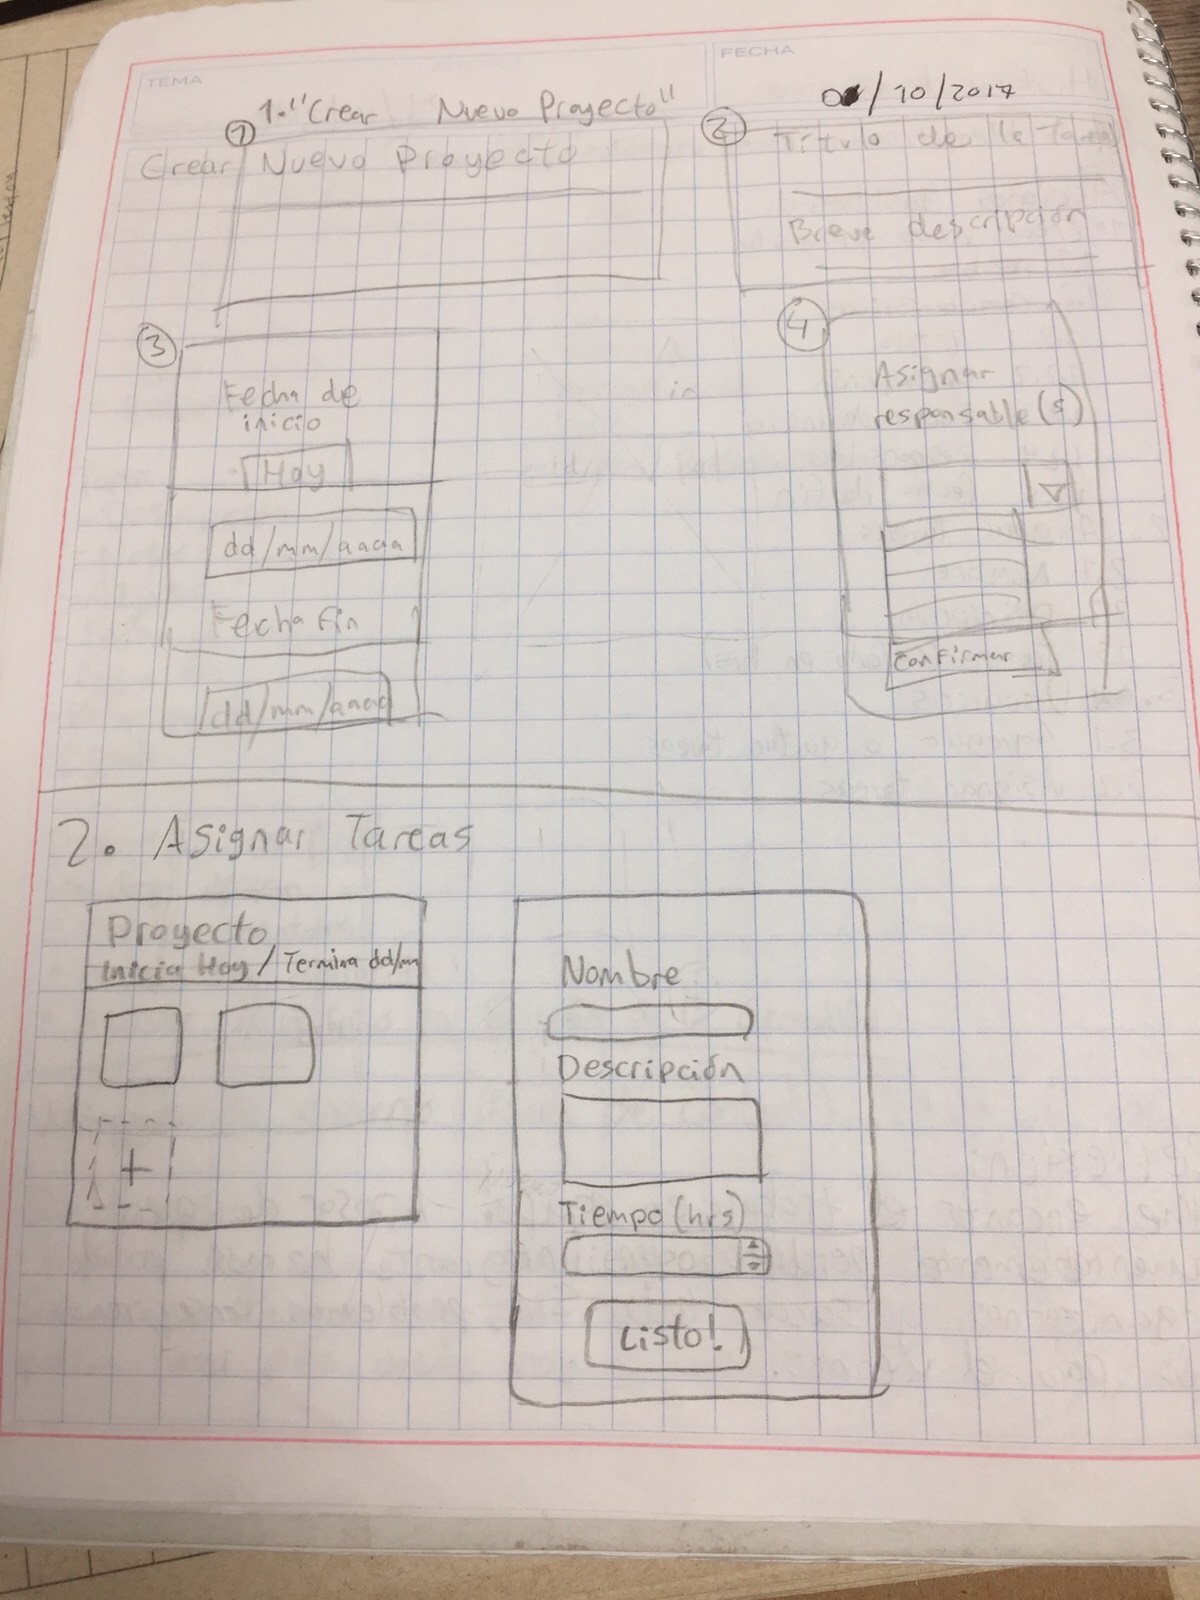 TEMA
FECHA
1. "Crear Nuevo Proyecto"
/10/2017
1
Crear Nuevo Proyecto
2
Título de la tarea
Breve descripción
3
Fecha de
inicio
Hoy
dd/mm/aaaa
Fecha Fin
dd/mm/aaaa
4
Asignar
responsable(s)
Confirmar
2. Asignar Tareas
Proyecto
Inicia Hoy / Termina dd/mm
+
Nombre
Descripción
Tiempo (hrs)
Listo!